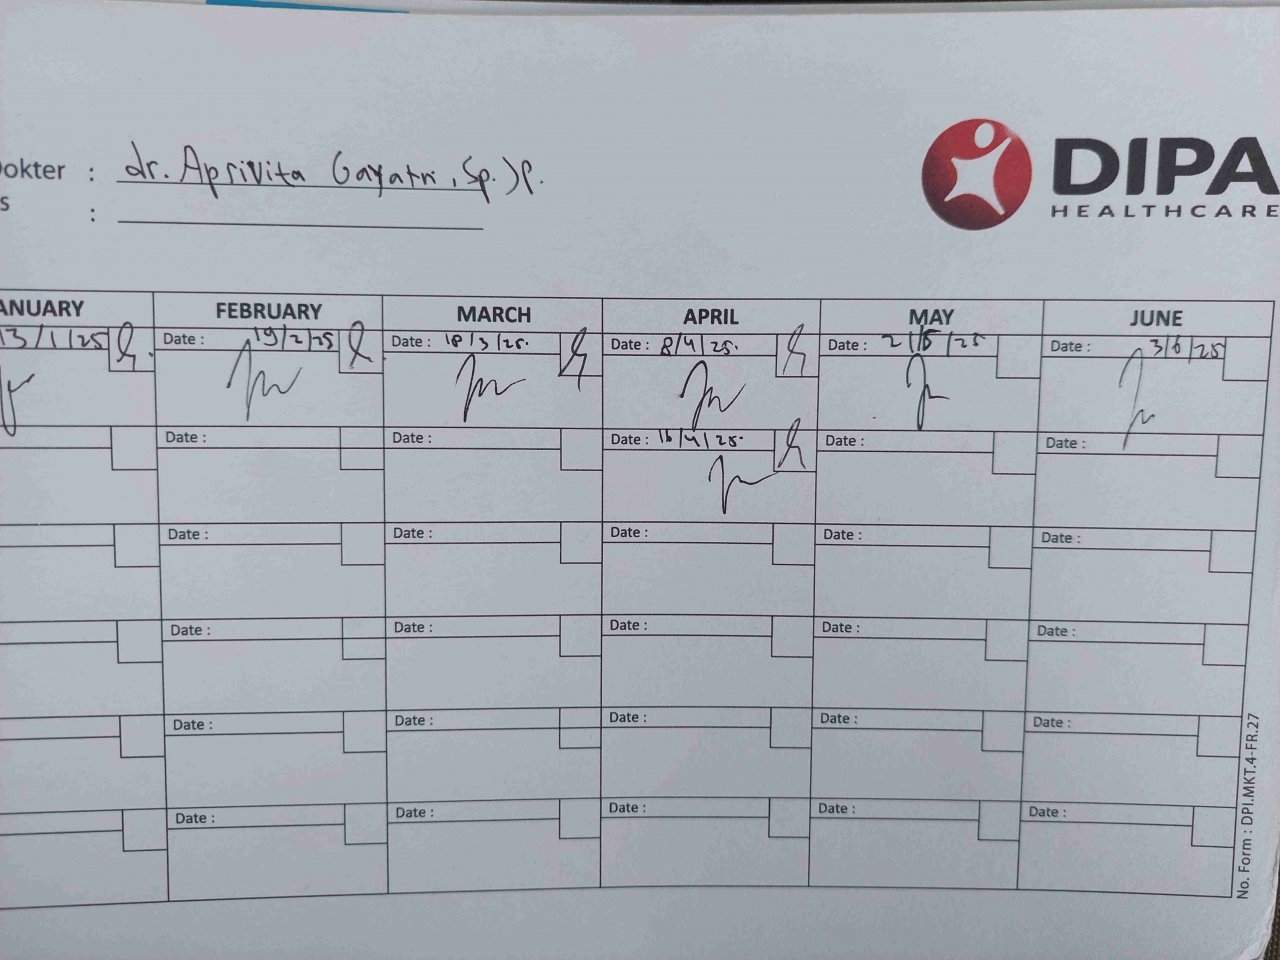 Dokter : dr. Aprivita Gayatri, Sp.JP.
s :
DIPA
HEALTHCARE
ANUARY FEBRUARY MARCH APRIL MAY JUNE
13/1/25 Date : 19/2/25 Date : 18/3/25. Date : 8/4/25. Date : 21/5/25 Date : 3/6/25
Date : Date : Date : 16/4/25. Date : Date :
Date : Date : Date : Date : Date :
Date : Date : Date : Date : Date :
Date : Date : Date : Date : Date :
Date : Date : Date : Date : Date :
No. Form : DPI.MKT.4-FR.27